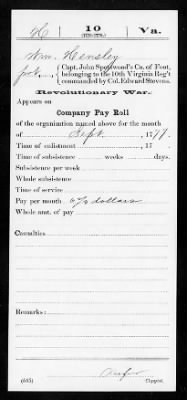 H | 10 | Va.
Wm. Hensley
Capt. John Spottswood's Co. of Foot,
belonging to the 10th Virginia Reg't
commanded by Col. Edward Stevens.
Revolutionary War.
Appears on
Company Pay Roll
of the organization named above for the month
of Sept., 1777.
Time of enlistment , 17 .
Time of subsistence weeks days.
Subsistence per week
Whole subsistence
Time of service
Pay per month 6 2/3 dollars
Whole amt. of pay
Casualties
Remarks:
(545) Copyist.